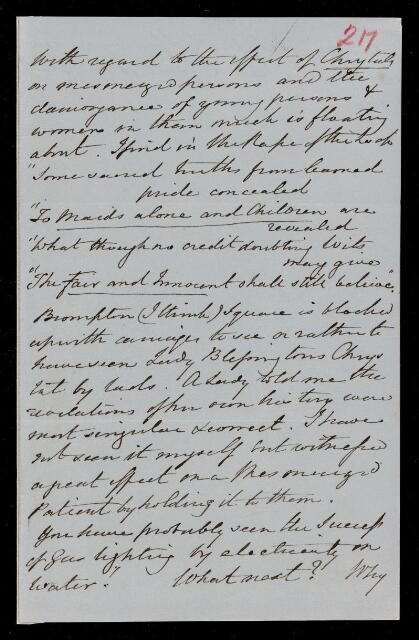 217
With regard to the effect of Chrystals
on mesmerized persons and the
clairvoyance of young persons &
women in them much is floating
about. I find in the Rape of the Lock
"Some sacred truths from learned
pride concealed
"To Maids alone and Children are
revealed
"What though no credit doubting Wits
may give
"The Fair and Innocent shall still believe".
Brompton (I think) Square is blocked
up with carriages to see or rather to
have seen Lady Blessingtons Chrys
tal by lads. A Lady told me the
revelations of her own history were
most singular & correct. I have
not seen it myself but witnessed
a great effect on a Mesmerized
Patient by holding it to them.
You have probably seen the success
of Gas lighting by electricity on
water." What next? Why